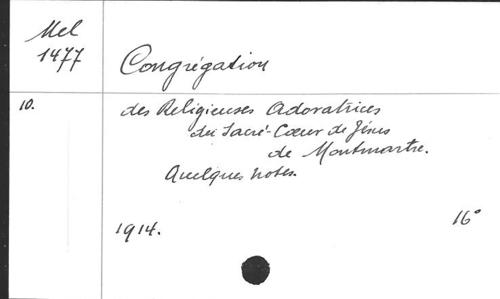 Mel
1477
Congrégation
10.
des Religieuses Adoratrices
du Sacré-Cœur de Jésus
de Montmartre.
Quelques notes.
1914.
16°